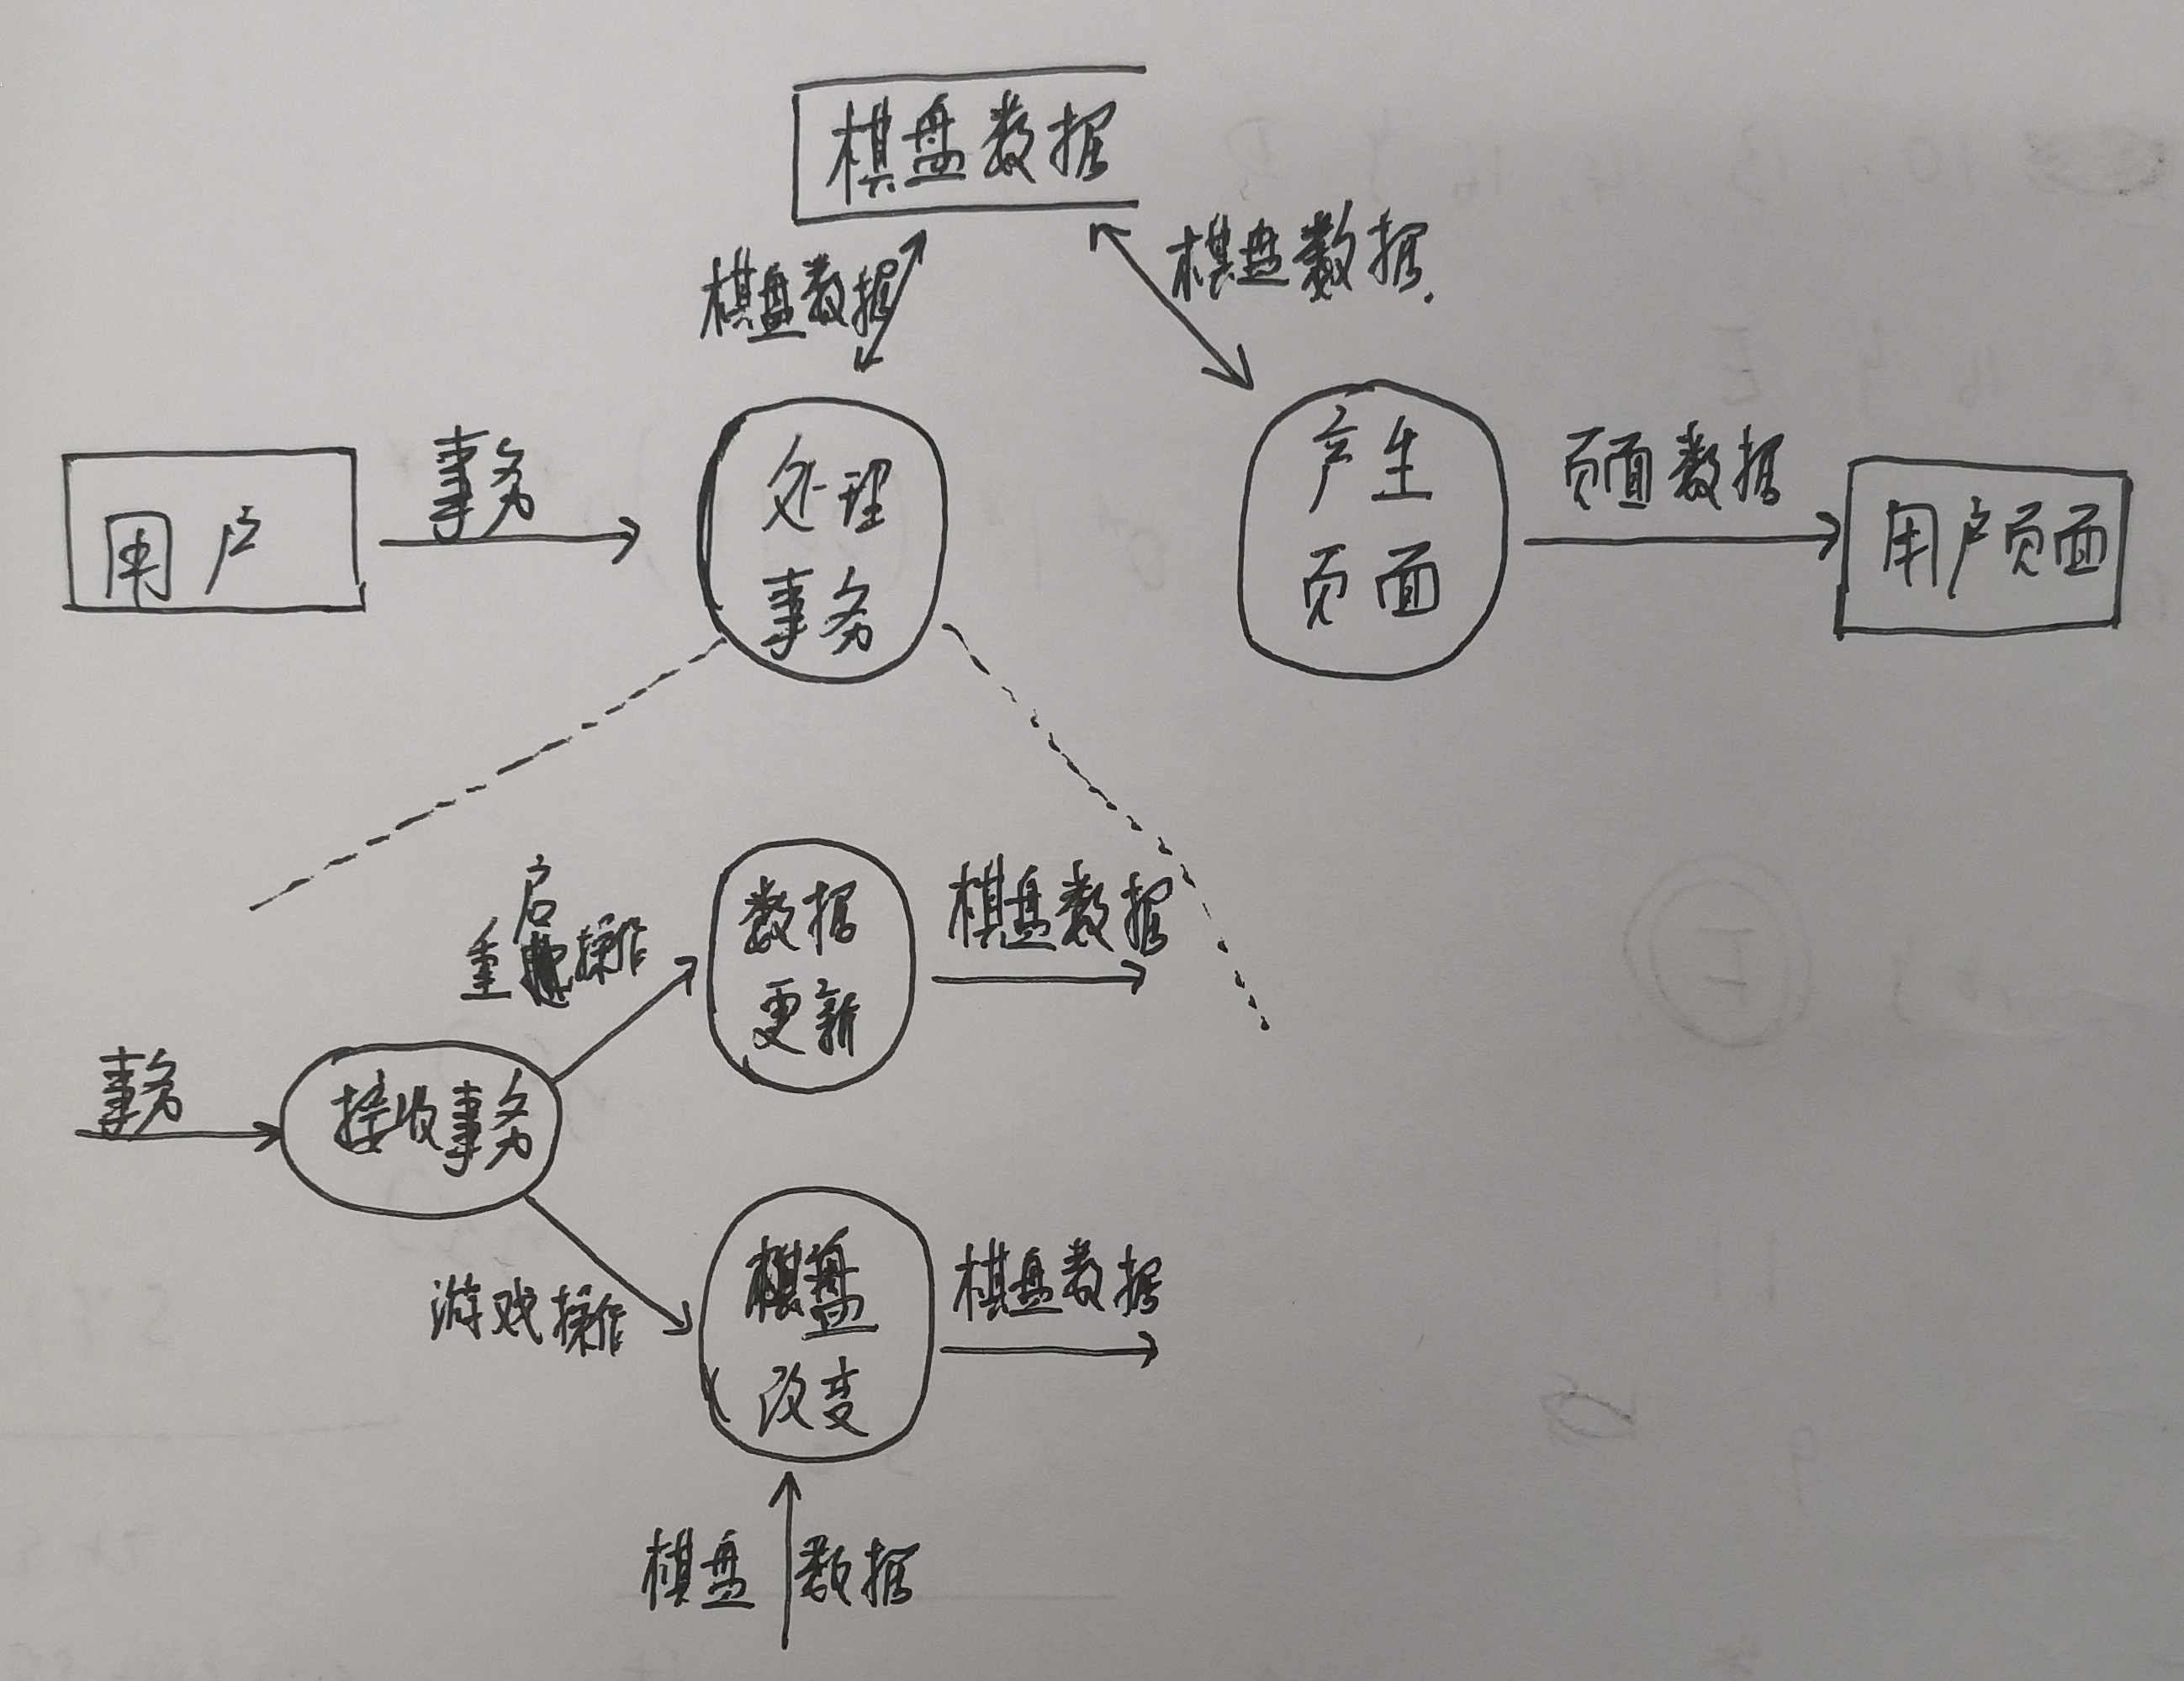 棋盘数据
棋盘数据
棋盘数据
用户
事务
处理
事务
产生
页面
页面数据
用户页面
重启操作
数据
更新
棋盘数据
事务
接收事务
游戏操作
棋盘
改变
棋盘数据
棋盘数据